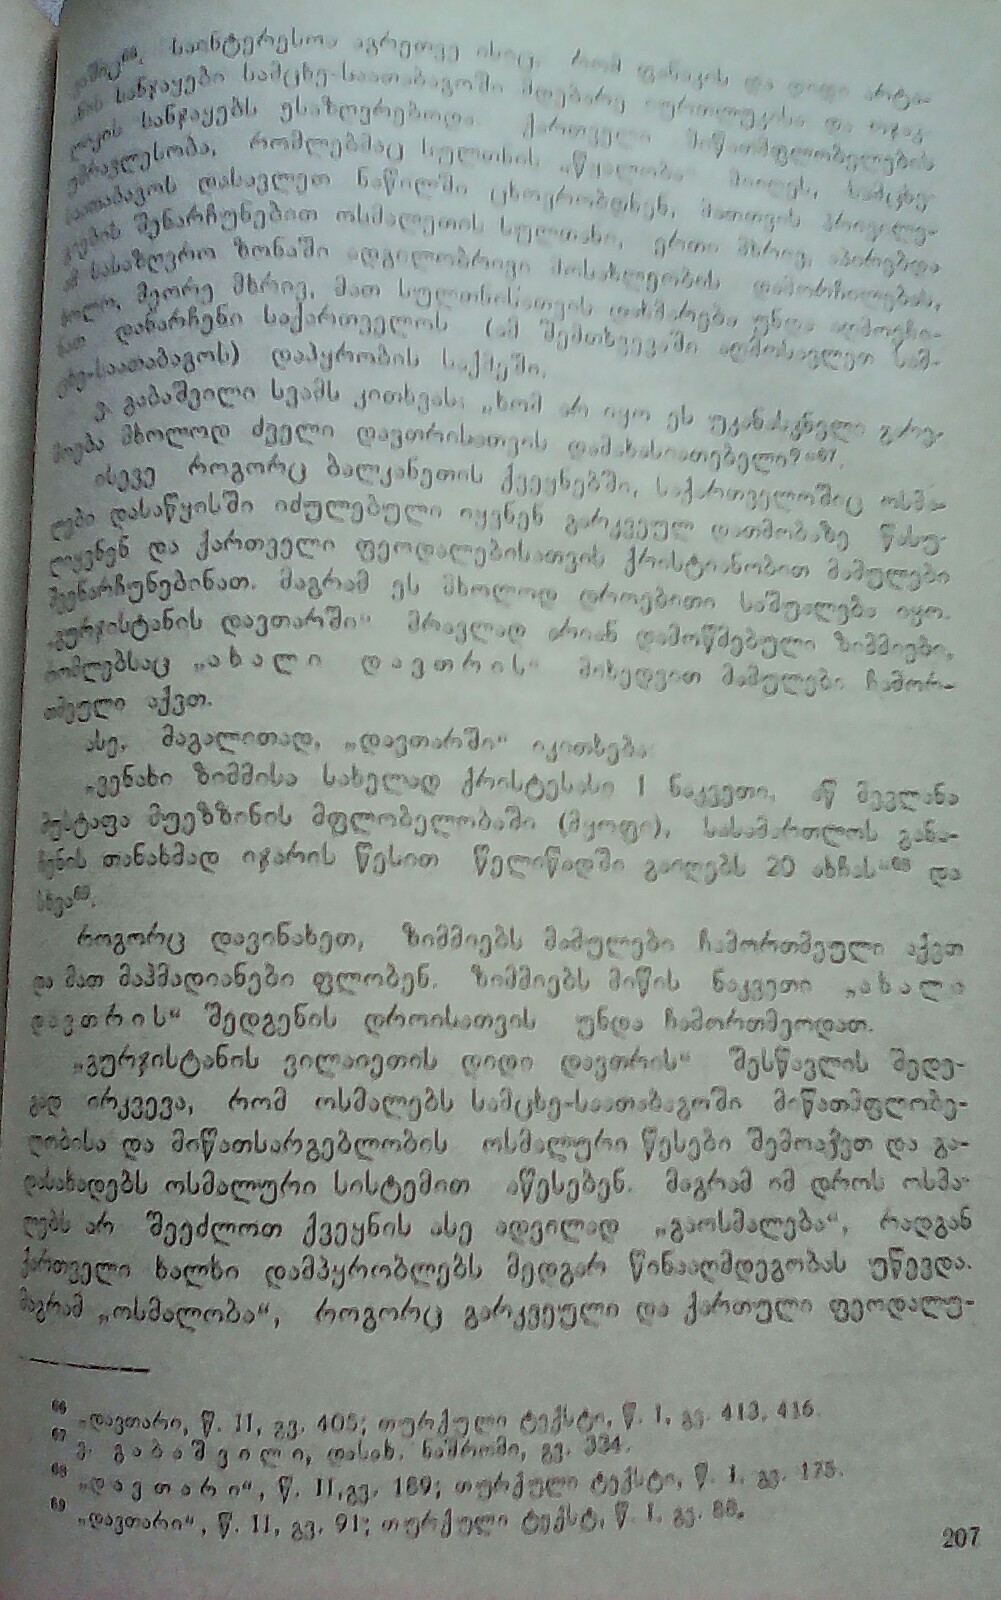 საინტერესოა აგრეთვე ისიც, რომ ფანაკის და დიდი არტა-
ნის სანჯაყები სამცხე-საათაბაგოში მდებარე და
სანჯაყებს ესაზღვრებოდა. ქართველი მიწათმფლობელების
უმრავლესობა, რომლებმაც სულთნის „წყალობა“ მიიღეს, სამცხე-
საათაბაგოს დასავლეთ ნაწილში ცხოვრობდნენ. მათთვის პრივილე-
გიების შენარჩუნებით ოსმალეთის სულთანი, ერთი მხრივ, აპირებდა
ამ სასაზღვრო ზონაში ადგილობრივი მოსახლეობის დამორჩილებას,
ხოლო, მეორე მხრივ, მათ სულთნისათვის დახმარება უნდა აღმოეჩი-
ნათ დანარჩენი საქართველოს (ამ შემთხვევაში აღმოსავლეთ სამ-
ცხე-საათაბაგოს) დაპყრობის საქმეში.
ვ. გაბაშვილი სვამს კითხვას: „ხომ არ იყო ეს უკანასკნელი გარე-
მოება მხოლოდ ძველი დავთრისათვის დამახასიათებელი?“⁶⁷.
ისევე როგორც ბალკანეთის ქვეყნებში, საქართველოშიც ოსმა-
ლები დასაწყისში იძულებული იყვნენ გარკვეულ დათმობაზე წასუ-
ლიყვნენ და ქართველი ფეოდალებისათვის ქრისტიანობით მამულები
შეენარჩუნებინათ. მაგრამ ეს მხოლოდ დროებითი საშუალება იყო.
„გურჯისტანის დავთარში“ მრავლად არიან დამოწმებული ზიმმიები,
რომლებსაც „ახალი დავთრის“ მიხედვით მამულები ჩამორ-
თმეული აქვთ.
ასე, მაგალითად, „დავთარში“ იკითხება:
„ვენახი ზიმმისა სახელად ქრისტესასი 1 ნაკვეთი, აწ მევლანა
მუსტაფა მუეზზინის მფლობელობაში (მყოფი), სასამართლოს განა-
ჩენის თანახმად იჯარის წესით წელიწადში გაიღებს 20 ახჩას“⁶⁸ და
სხვა⁶⁹.
როგორც დავინახეთ, ზიმმიებს მამულები ჩამორთმეული აქვთ
და მათ მაჰმადიანები ფლობენ. ზიმმიებს მიწის ნაკვეთი „ახალი
დავთრის“ შედგენის დროისათვის უნდა ჩამორთმეოდათ.
„გურჯისტანის ვილაიეთის დიდი დავთრის“ შესწავლის შედე-
გად ირკვევა, რომ ოსმალებს სამცხე-საათაბაგოში მიწათმფლობე-
ლობისა და მიწათსარგებლობის ოსმალური წესები შემოაქვთ და გა-
დასახადებს ოსმალური სისტემით აწესებენ. მაგრამ იმ დროს ოსმა-
ლებს არ შეეძლოთ ქვეყნის ასე ადვილად „გაოსმალება“, რადგან
ქართველი ხალხი დამპყრობლებს მედგარ წინააღმდეგობას უწევდა.
მაგრამ „ოსმალობა“, როგორც გარკვეული და ქართული ფეოდალუ-
⁶⁶ „დავთარი, წ. II, გვ. 405; თურქული ტექსტი, წ. I, გვ. 413, 416.
⁶⁷ ვ. გაბაშვილი, დასახ. ნაშრომი, გვ. 334.
⁶⁸ „დავთარი“, წ. II, გვ. 189; თურქული ტექსტი, წ. I, გვ. 175.
⁶⁹ „დავთარი“, წ. II, გვ. 91; თურქული ტექსტი, წ. I, გვ. 88.
207